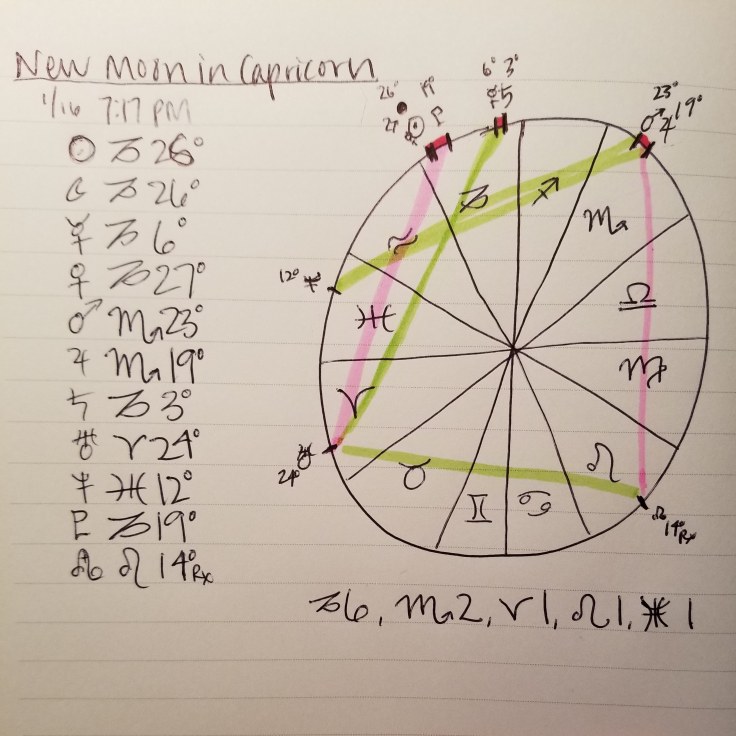 New Moon in Capricorn
1/16 7:17 PM
☉ ♑ 26°
☾ ♑ 26°
☿ ♑ 6°
♀ ♑ 27°
♂ ♏ 23°
♃ ♏ 19°
♄ ♑ 3°
♅ ♈ 24°
♆ ♓ 12°
♇ ♑ 19°
☊ ♌ 14° Rx
26° 19° 6° 3° 23°
27° ♀ ♇ ☿ ♄ ♂ ♃ 19°
♑ ♐ ♏
12° ♆ ♒ ♎
♓ ♍
♈
24° ♅ ♉ ♌
♊ ♋ ☊ 14° Rx
♑6, ♏2, ♈1, ♌1, ♓1